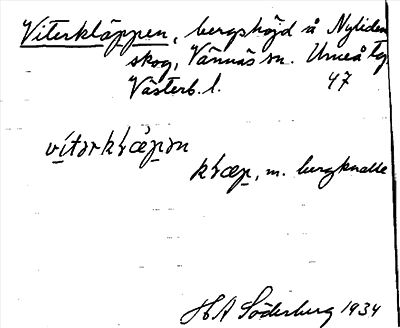 Viterkläppen, bergshöjd å Nyliden
skog, Vännäs sn. Umeå tg
Västerb. l. 47
vítərkḷæ̀pən
kḷæp, m. bergknalle
H A Söderberg 1934